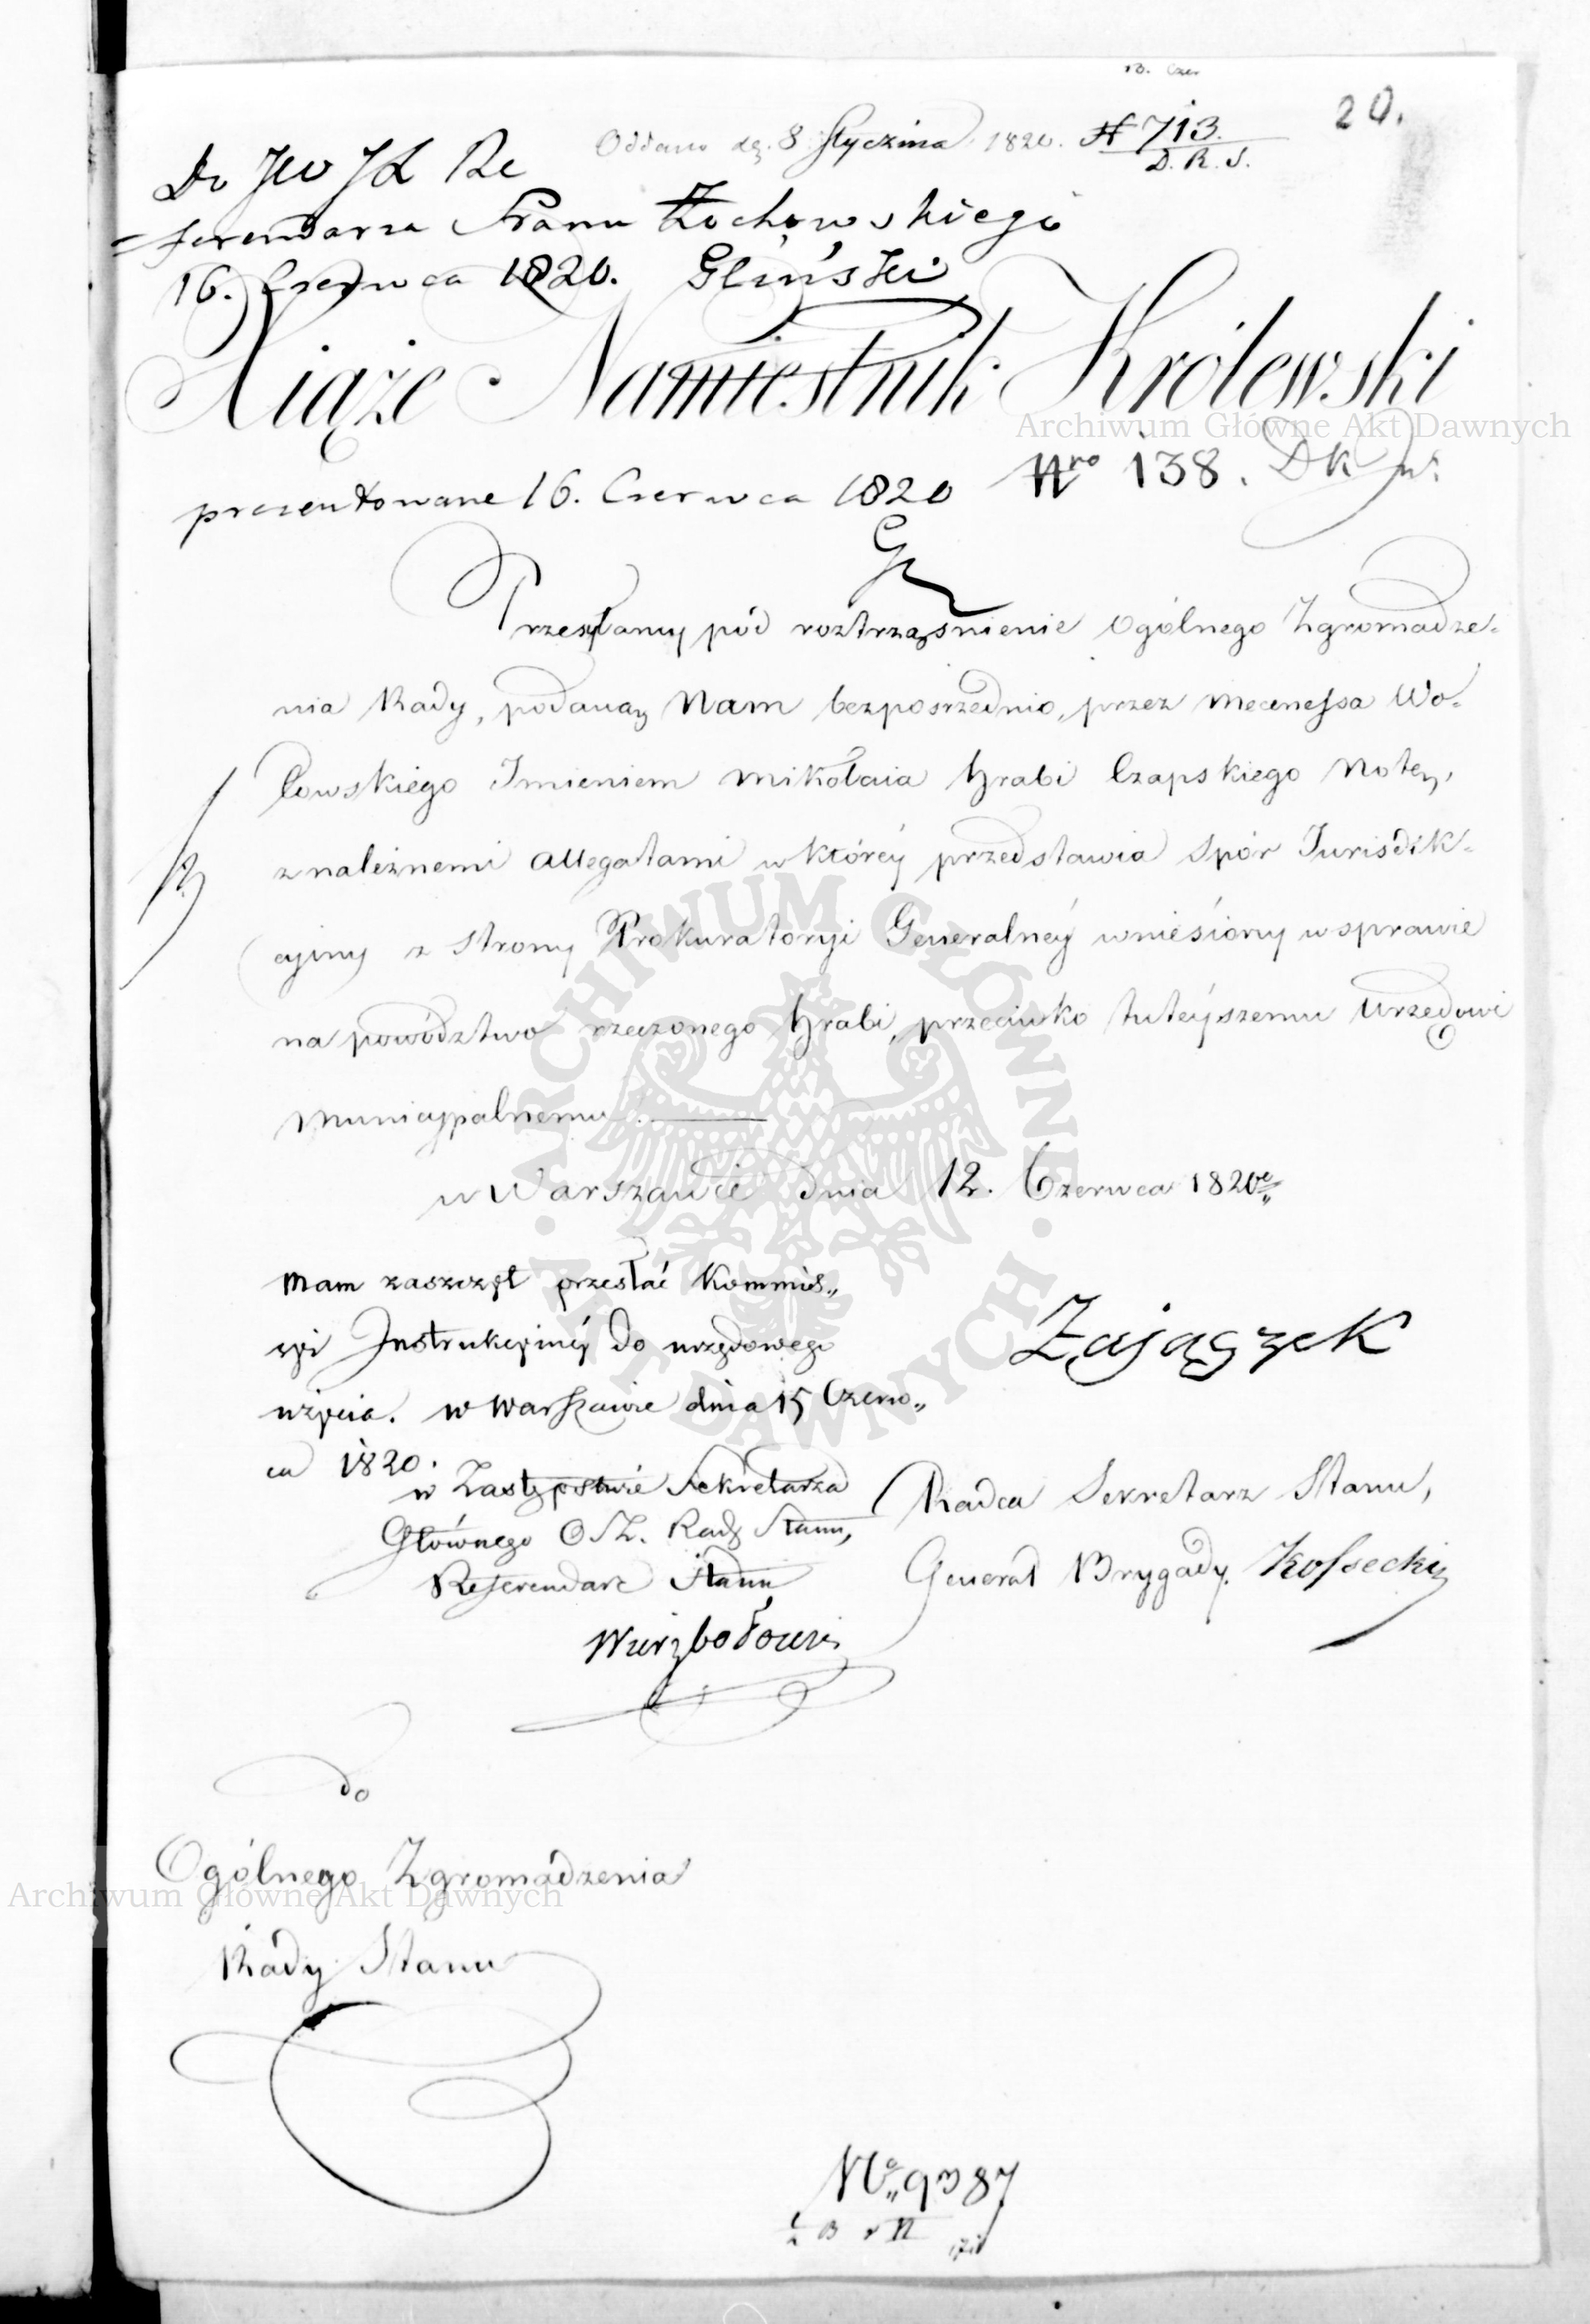 20.
Oddano d. 8 Stycznia 1820. N 713.
D. R. S.
Do JW JX Re
=ferendarza Stanu Żochowskiego
16. Czerwca 1820. Gliński
Xiąże Namiestnik Królewski
Archiwum Główne Akt Dawnych
prezentowane 16. Czerwca 1820 Nro 138.
Przesyłamy pód roztrząśnienie Ogólnego Zgromadze-
nia Rady, podaną Nam bezpośrzednio, przez Mecenassa Wo-
łowskiego Imieniem Mikołaia Hrabi Czapskiego Notę,
z należnemi allegatami w któréy przedstawia Spór Jurisdik-
cyiny z Strony Prokuratoryi Generalnéy wniesiony w sprawie
na powództwo rzeczonego Hrabi, przeciwko tuteyszemu Urzędowi
Municypalnemu.
w Warszawie dnia 12. Czerwca 1820
Mam zaszczyt przesłać Kommis„
syi Instrukcyinéy do urzędowego
użycia. w Warszawie dnia 15 Czerw„
ca 1820.
Zajączek
w Zastępstwie Sekretarza
Głównego O Z. Rady Stanu,
Referendarz Stanu
Radca Sekretarz Stanu,
Generał Brygady Kossecki
do
Ogólnego Zgromadzenia
Archiwum Główne Akt Dawnych
Rady Stanu
ARCHIWUM GŁÓWNE
AKT DAWNYCH
No 9387